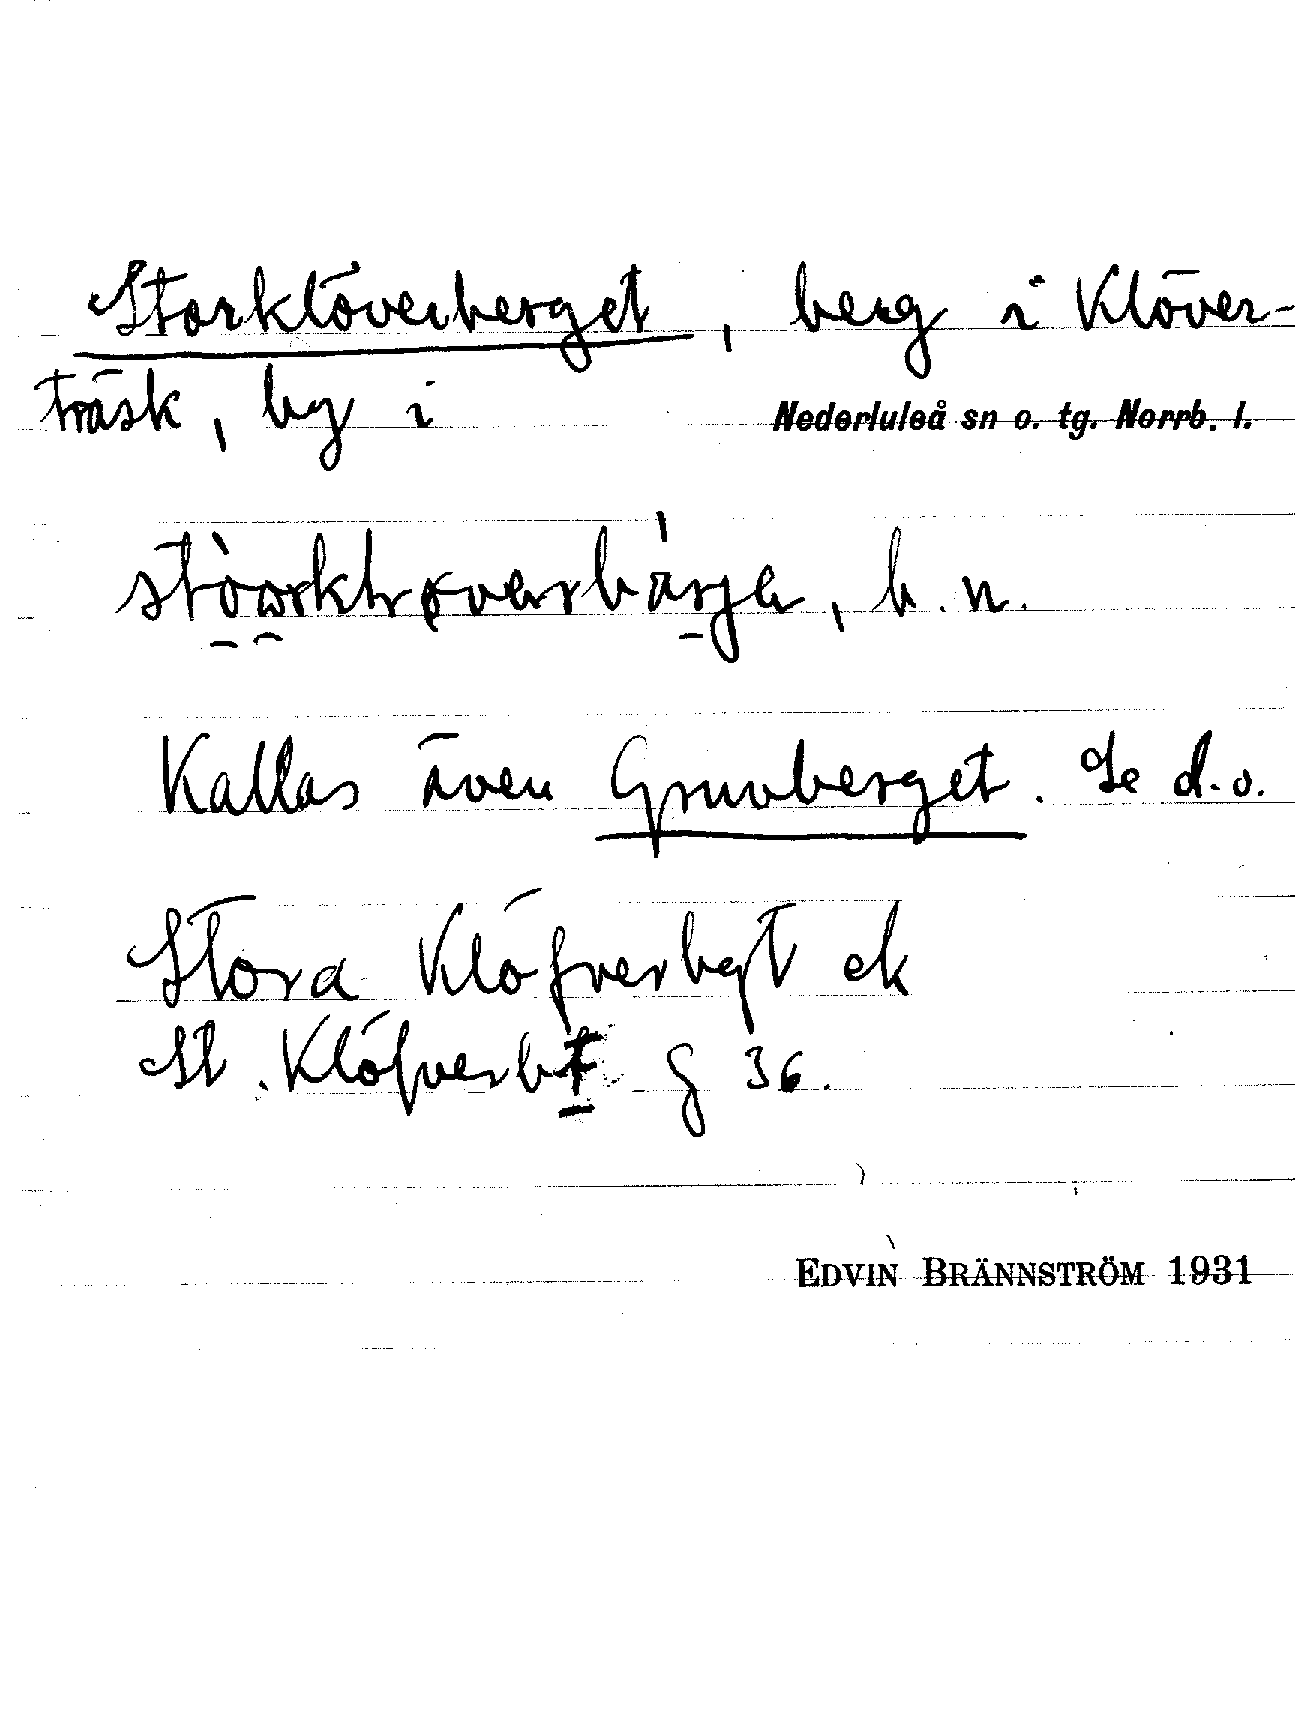 Storklöverberget, berg i Klöver-
träsk, by i Nederluleå sn o. tg. Norrb. l.
b. n.
Kallas även Gruvberget. Se d.o.
Stora Klöfverbgt ek
St. Klöfverbt g 36.
EDVIN BRÄNNSTRÖM 1931